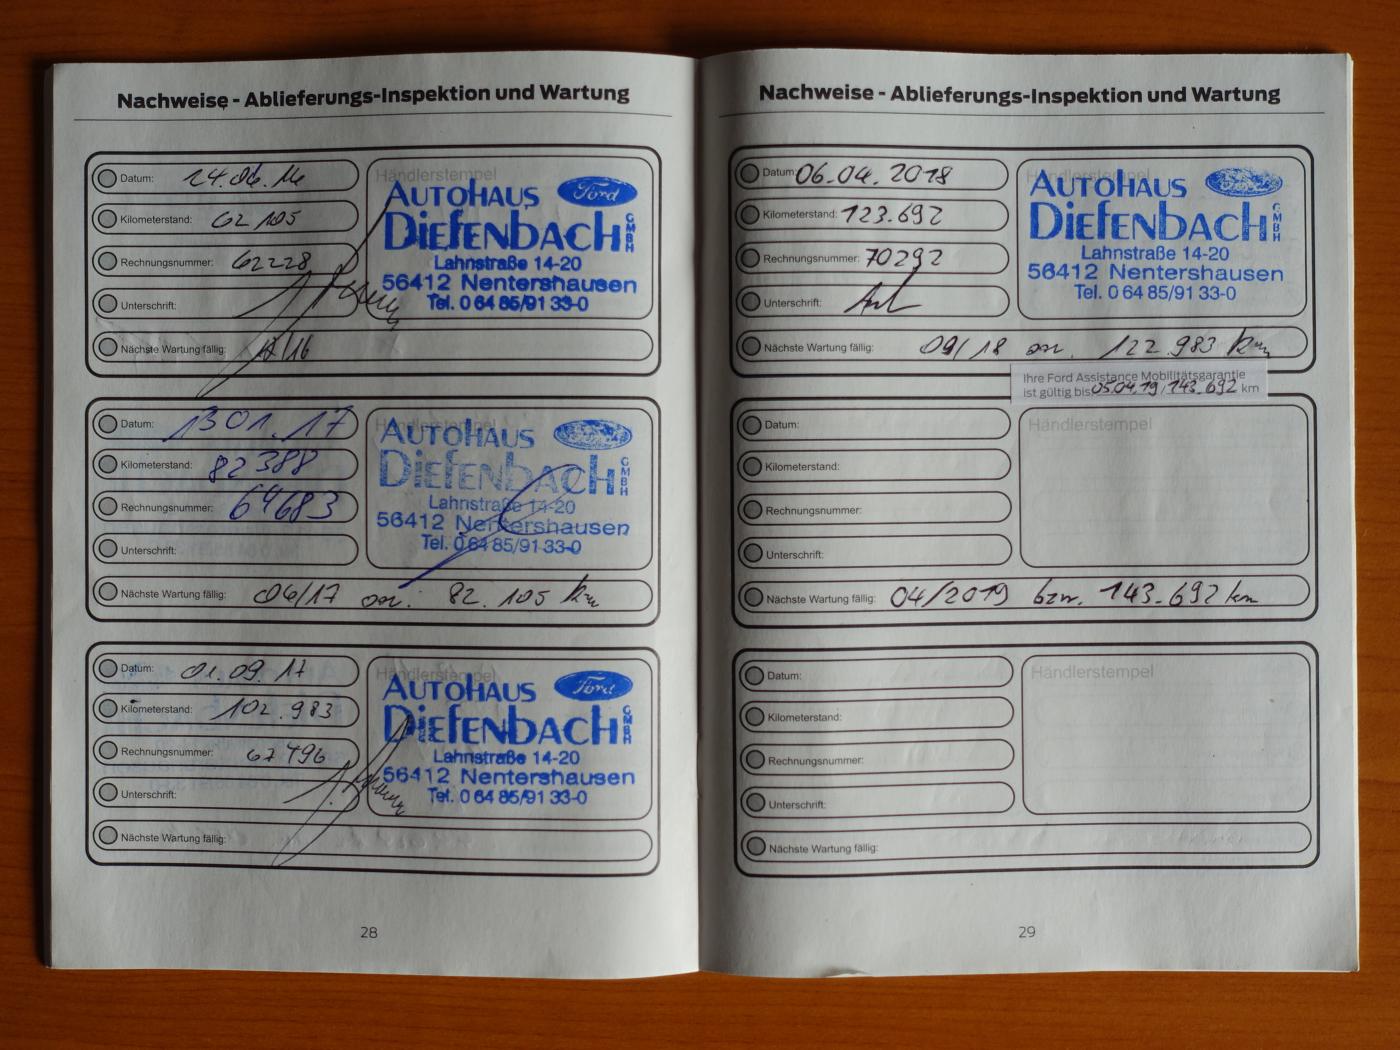 Nachweise - Ablieferungs-Inspektion und Wartung
Datum: 24.06.16
Kilometerstand: 62 105
Rechnungsnummer: 62228
Unterschrift:
Nächste Wartung fällig: /16
Händlerstempel
AUTOHAUS Ford
DIEFENBACH GMBH
Lahnstraße 14-20
56412 Nentershausen
Tel. 0 64 85/91 33-0
Datum: 13 01. 17
Kilometerstand: 82 388
Rechnungsnummer: 64683
Unterschrift:
Nächste Wartung fällig: 06/17 82. 105 km
Händlerstempel
AUTOHAUS
DIEFENBACH GMBH
Lahnstraße 14-20
56412 Nentershausen
Tel. 0 64 85/91 33-0
Datum: 01.09.17
Kilometerstand: 102.983
Rechnungsnummer: 67496
Unterschrift:
Nächste Wartung fällig:
Händlerstempel
AUTOHAUS Ford
DIEFENBACH GMBH
Lahnstraße 14-20
56412 Nentershausen
Tel. 0 64 85/91 33-0
28
Nachweise - Ablieferungs-Inspektion und Wartung
Datum: 06.04.2018
Kilometerstand: 123.692
Rechnungsnummer: 70292
Unterschrift:
Nächste Wartung fällig: 09/18 122.983 km
Händlerstempel
AUTOHAUS
DIEFENBACH GMBH
Lahnstraße 14-20
56412 Nentershausen
Tel. 0 64 85/91 33-0
Ihre Ford Assistance Mobilitätsgarantie
ist gültig bis 05.04.19/143.692 km
Datum:
Kilometerstand:
Rechnungsnummer:
Unterschrift:
Nächste Wartung fällig: 04/2019 bzw. 143.692 km
Händlerstempel
Datum:
Kilometerstand:
Rechnungsnummer:
Unterschrift:
Nächste Wartung fällig:
Händlerstempel
29